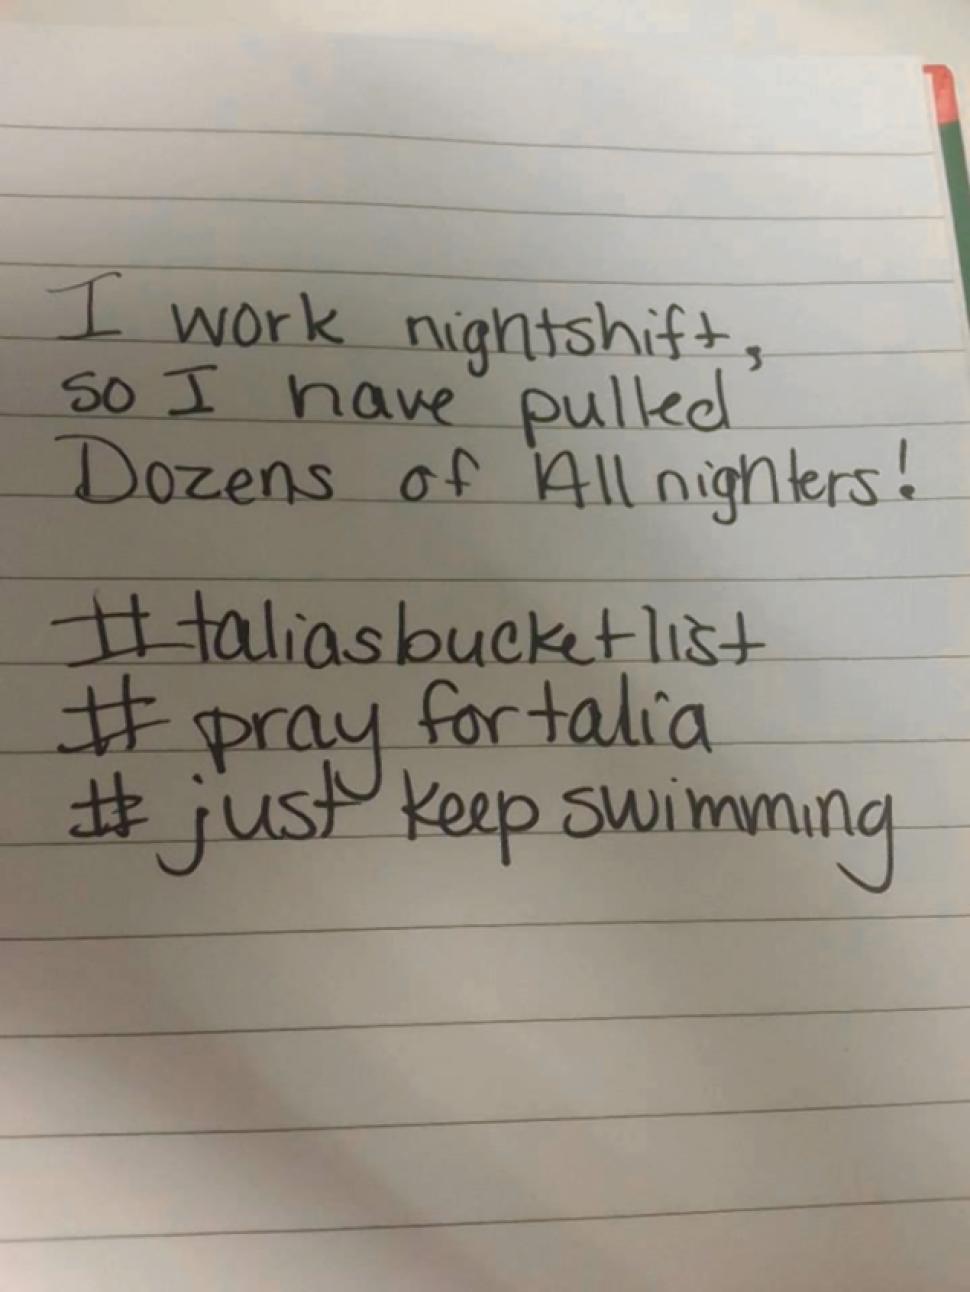 I work nightshift,
so I have pulled
Dozens of All nighters!
#taliasbucketlist
# pray fortalia
# just keep swimming